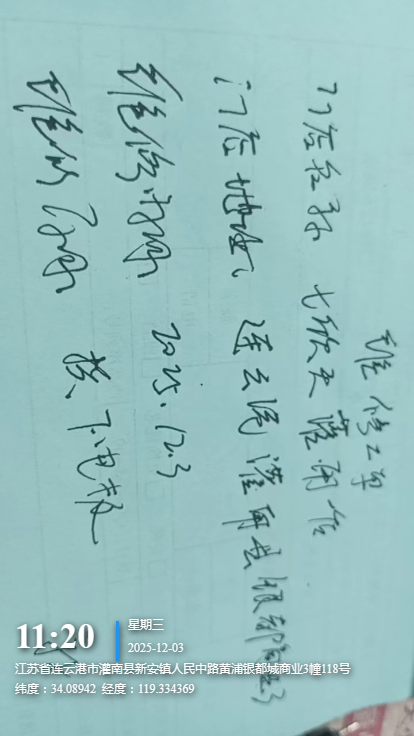 维修工单
门店名称 七欣天灌南店
门店地址 连云港灌南县银都
维修时间 2025.12.3
维修内容 换下电板
11:20
星期三
2025-12-03
江苏省连云港市灌南县新安镇人民中路黄浦银都城商业3幢118号
纬度：34.08942 经度：119.334369